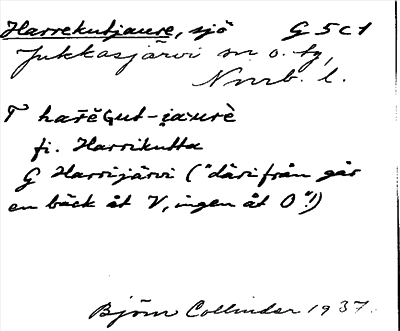 Harrekutjaure, sjö G 5 c 1
Jukkasjärvi sn o. tg,
Nmrb. l.
T harĕGut-jaurè
fi. Harrikutta
G Harrijärvi ("därifrån går
en bäck åt V, ingen åt O"!)
Björn Collinder 1937.